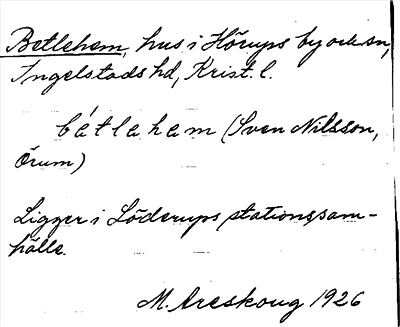 Betlehem, hus i Hörups by och sn,
Ingelstads hd, Krist. l.
bétlehem (Sven Nilsson,
Örum)
Ligger i Löderups stationssam-
hälle.
M. Areskoug 1926